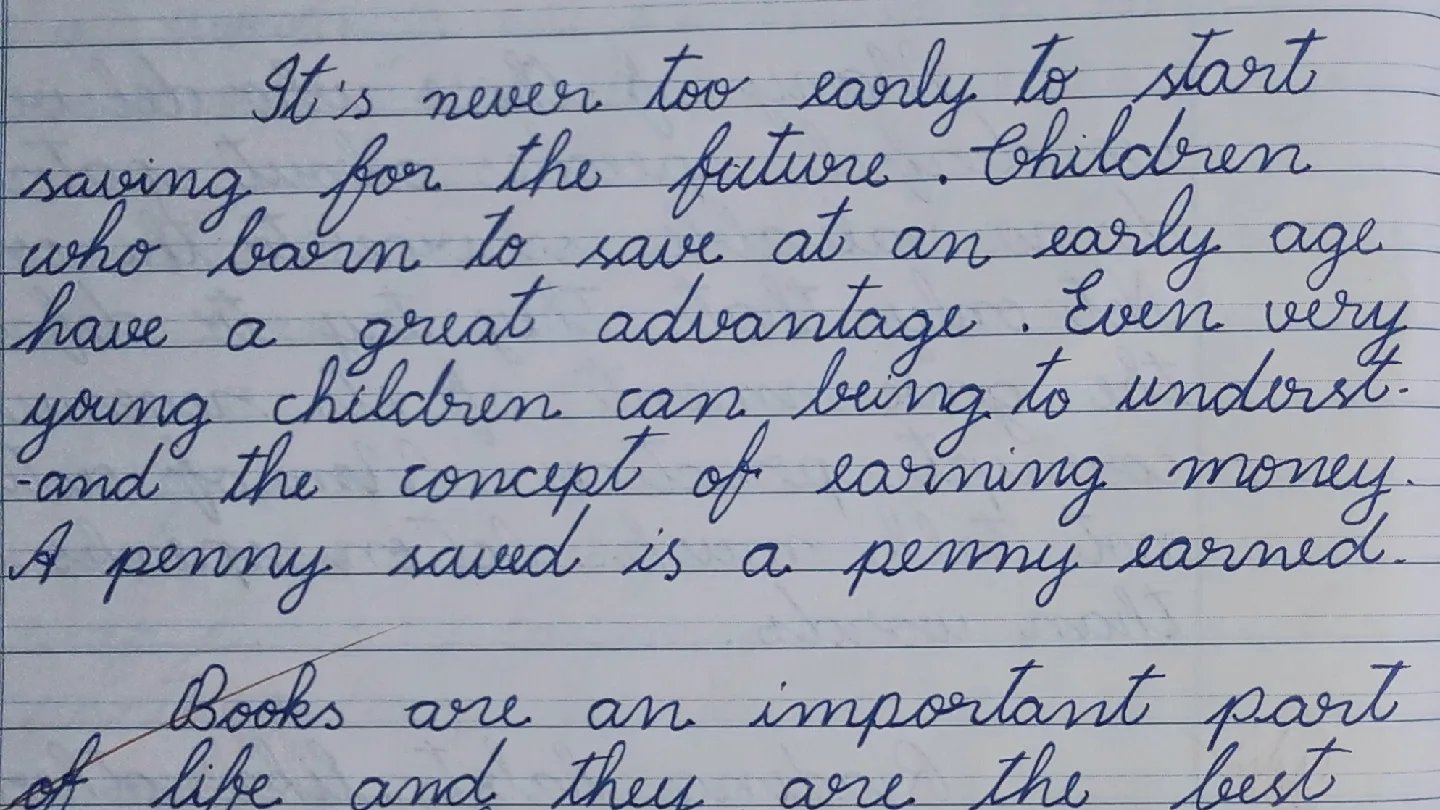 It's never too early to start
saving for the future. Children
who learn to save at an early age
have a great advantage. Even very
young children can being to underst-
-and the concept of earning money.
A penny saved is a penny earned.
Books are an important part
of life and they are the best